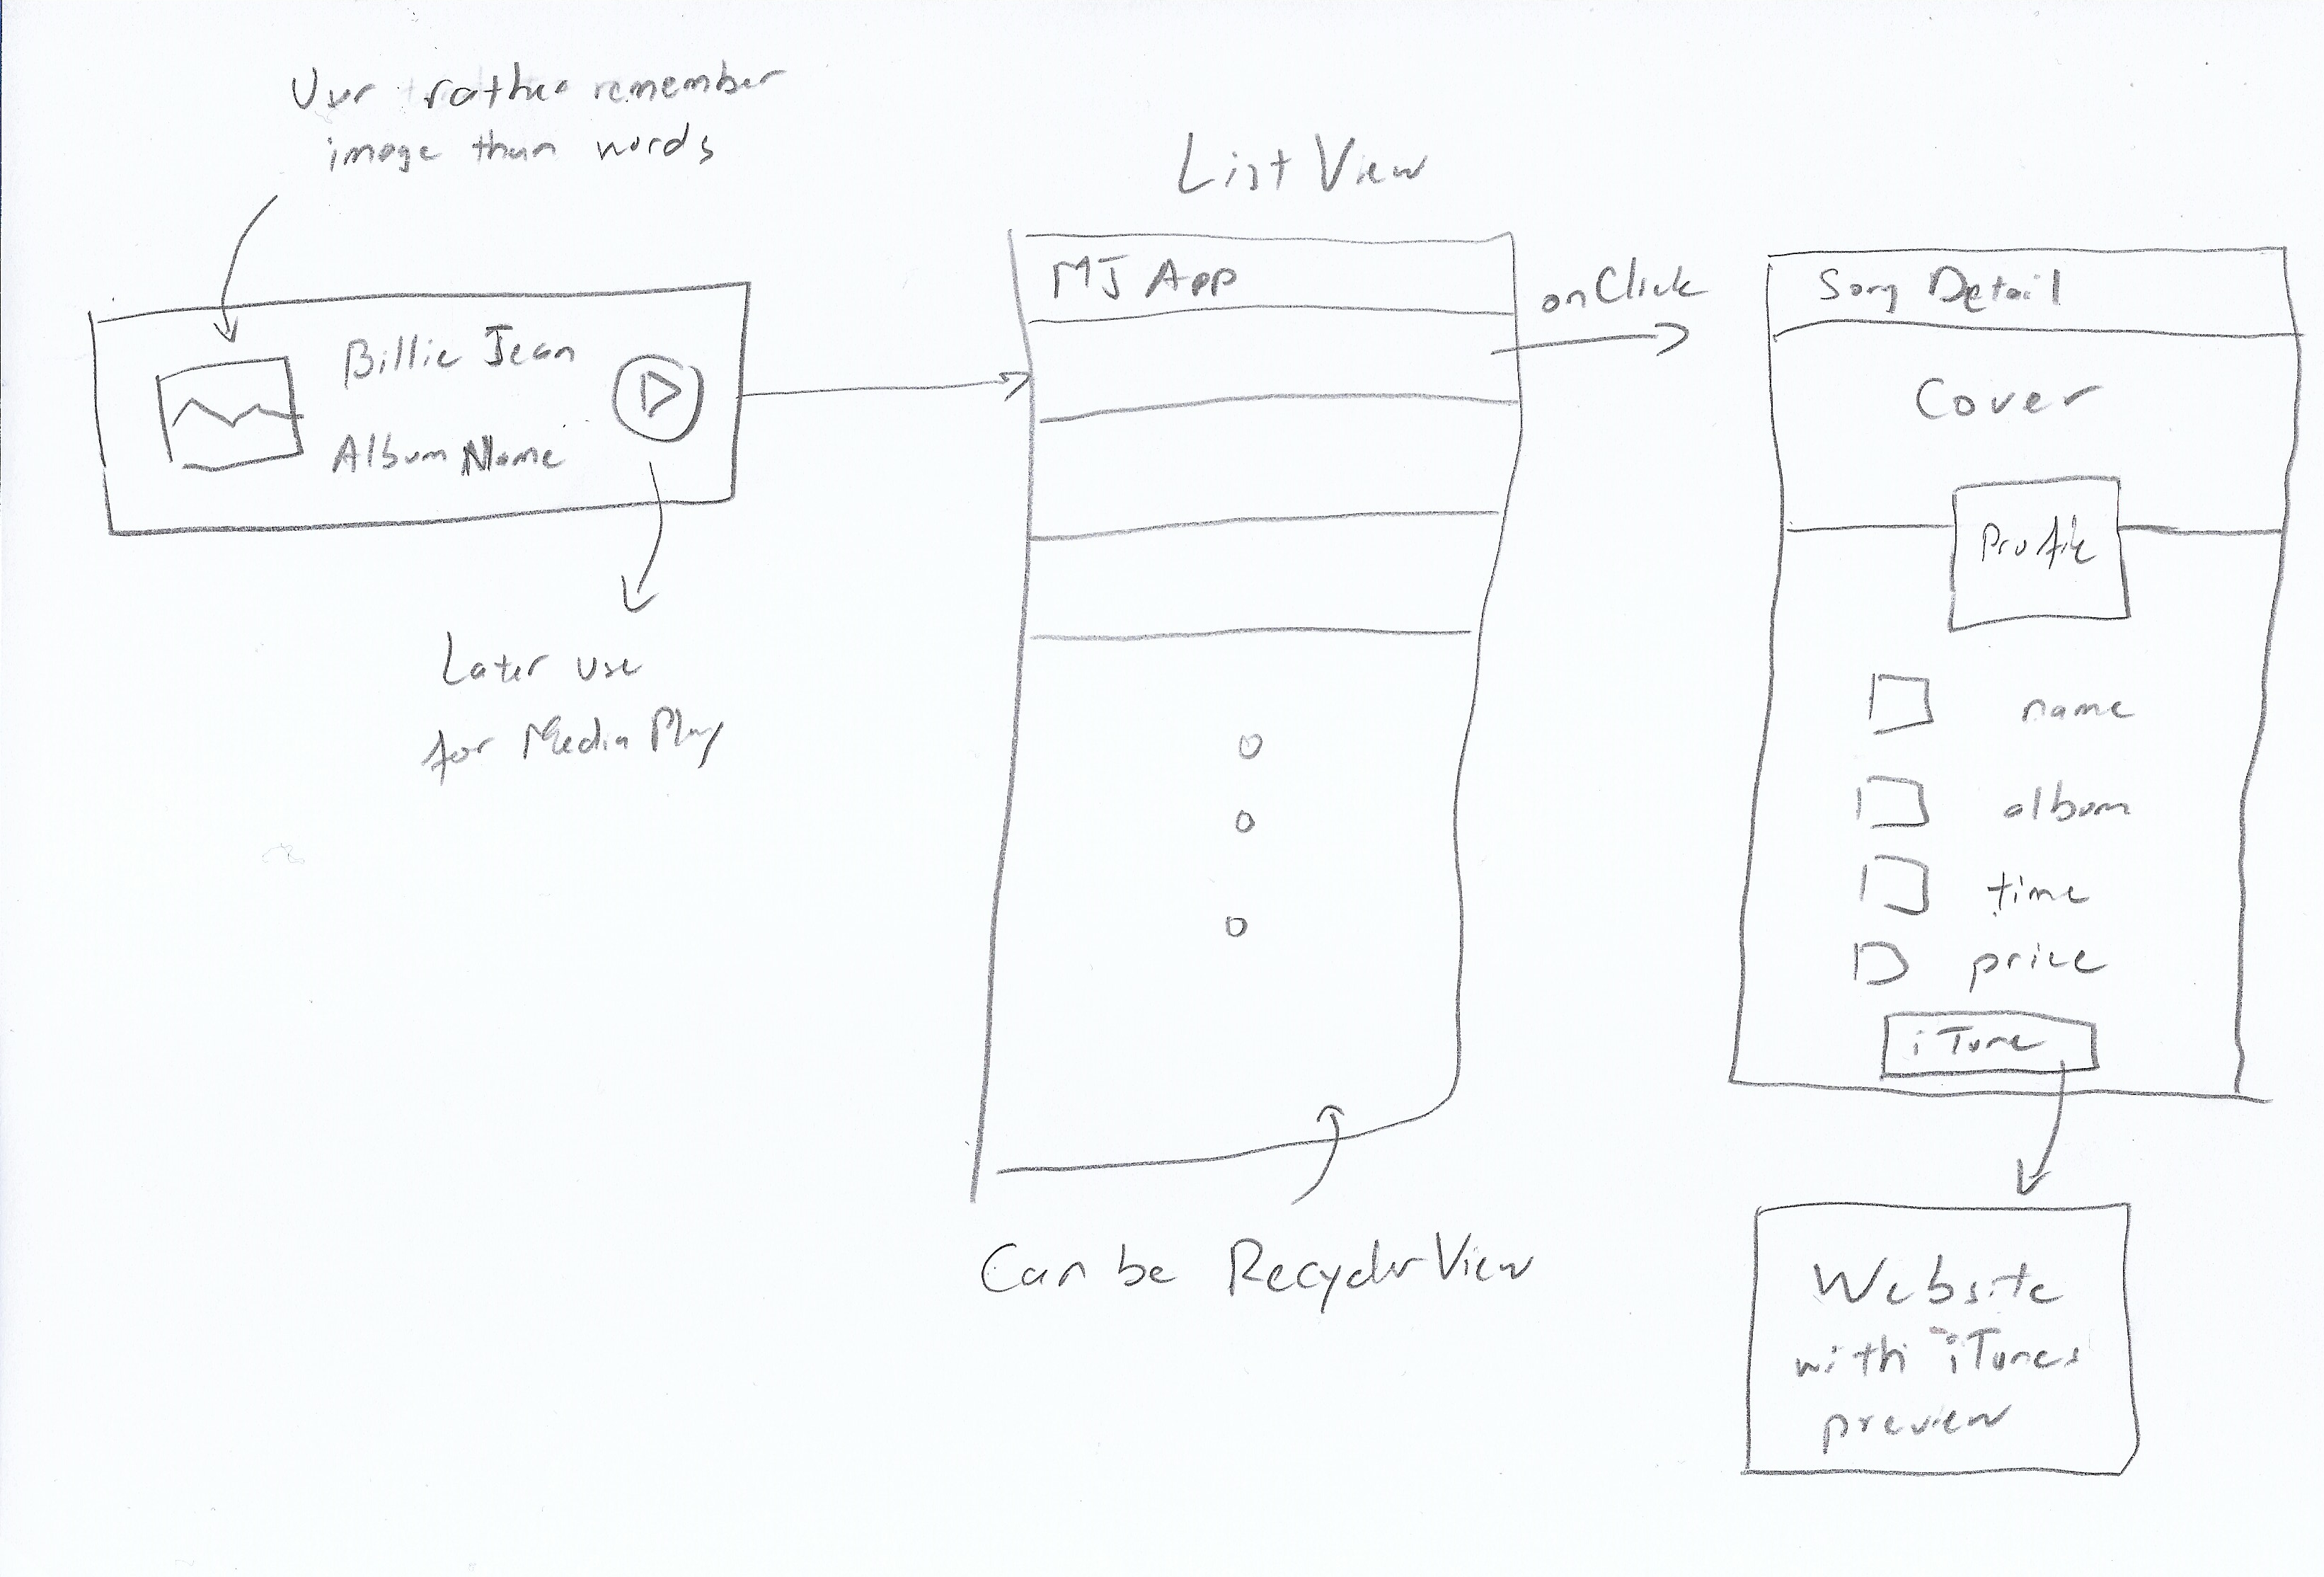 User rather remember
image than words
Billie Jean
Album Name
Later use
for Media Play
List View
MJ App
Can be RecyclerView
onClick
Song Detail
Cover
Profile
name
album
time
price
iTune
Website
with iTunes
preview